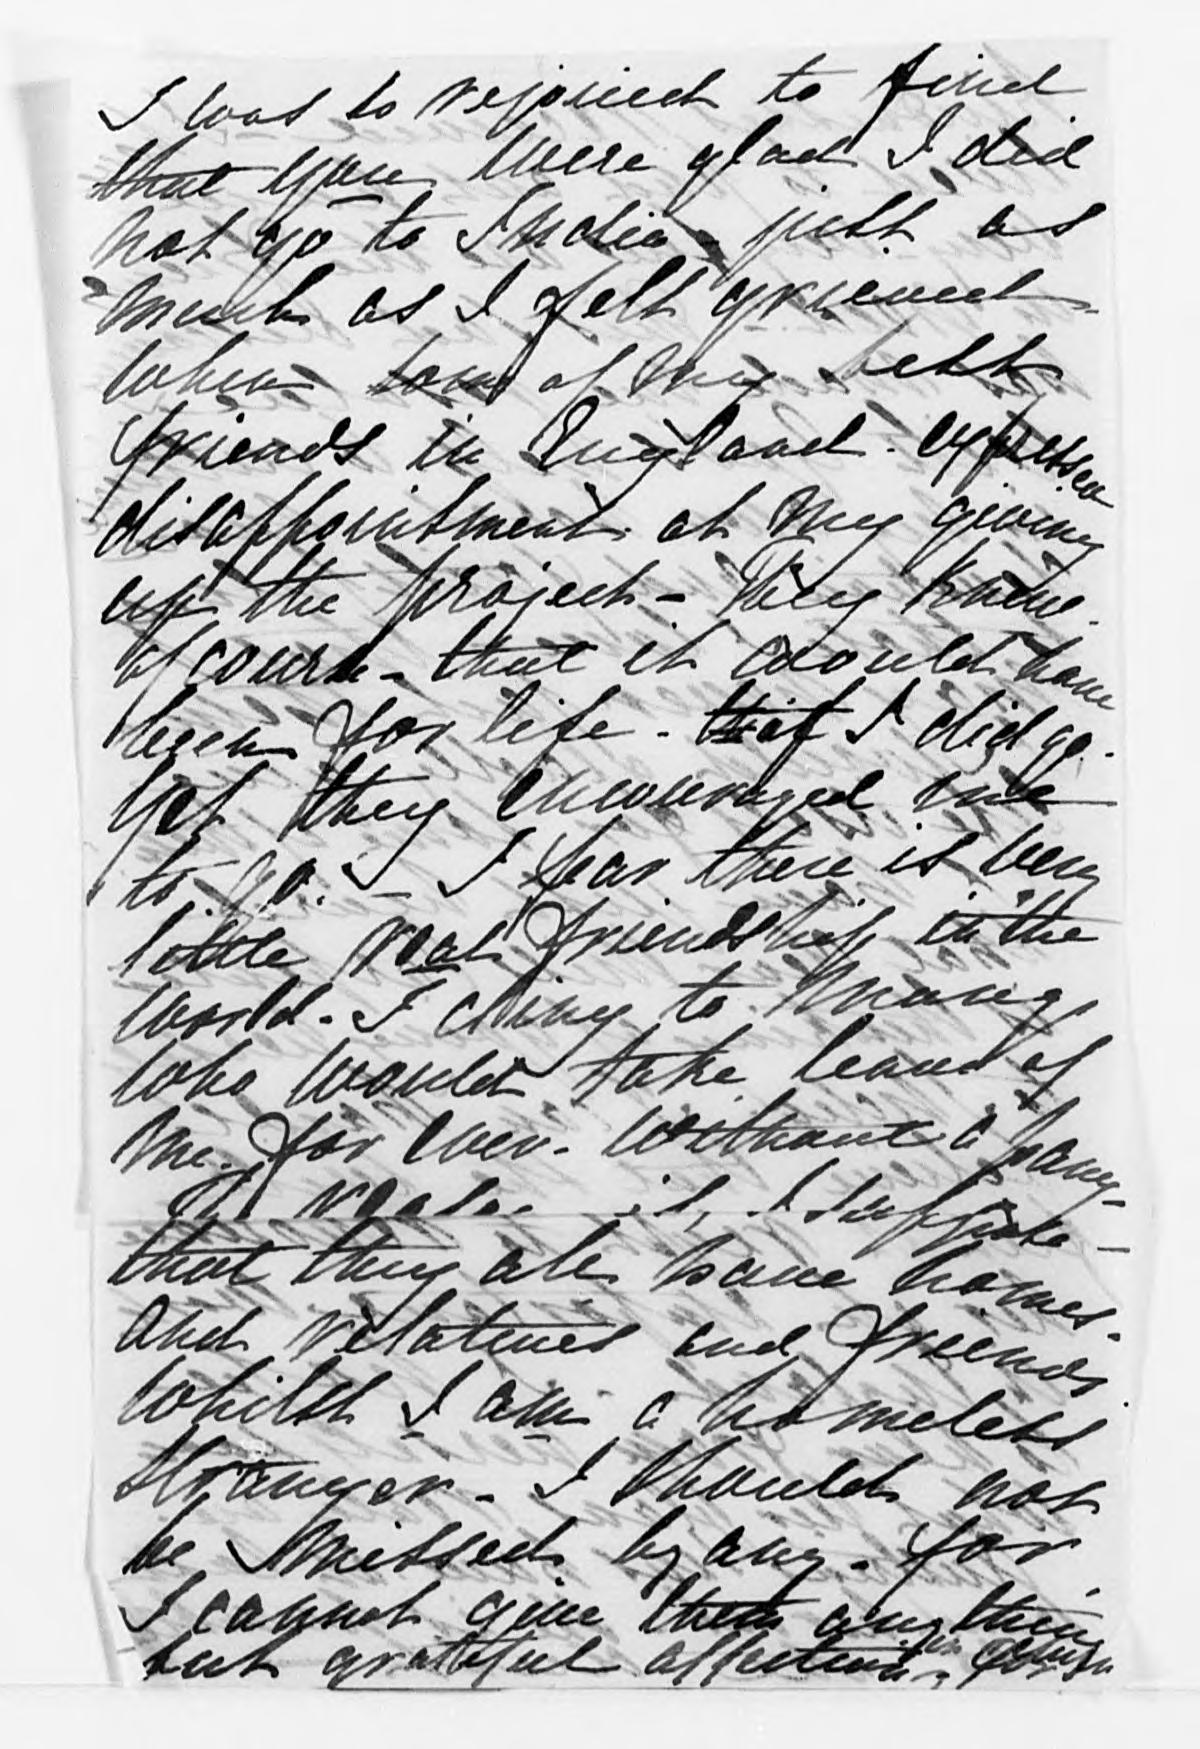 I was so rejoiced to find
that you were glad I did
not go to India - just as
much as I felt grieved
when some of my best
friends in England - expressed
disappointment at my giving
up the project - They knew -
of course - that it would have
been for life - if I did go -
Yet they encouraged me
to go. - I fear there is very
little real friendship in the
world - I cling to many
who would take leave of
me - for ever - without a pang -
is, I suppose -
that they all have homes -
and relatives and friends
whilst I am a homeless
stranger - I should not
be missed by any - for
I cannot give them anything
but grateful affection